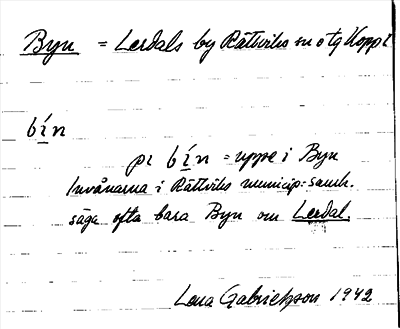 Byn = Lerdals by Rättviks sn o tg Koppl
bín
pɩ bín = uppe i Byn
Invånarna i Rättviks municip:samh.
säga ofta bara Byn om Lerdal.
Lena Gabrielsson 1942